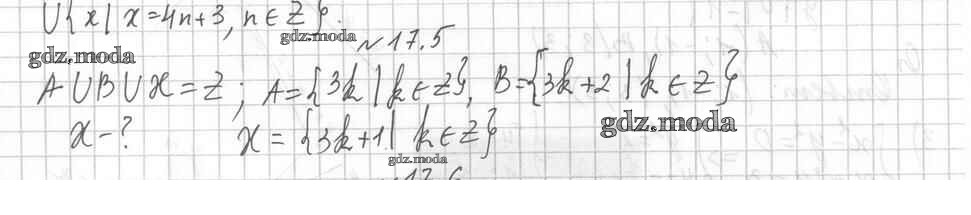 U{x | x=4n+3, n∈Z}.
gdz.moda
№17.5
gdz.moda
A∪B∪X=Z; A={3k | k∈Z}, B={3k+2 | k∈Z}
X-? X={3k+1 | k∈Z}
gdz.moda
gdz.moda